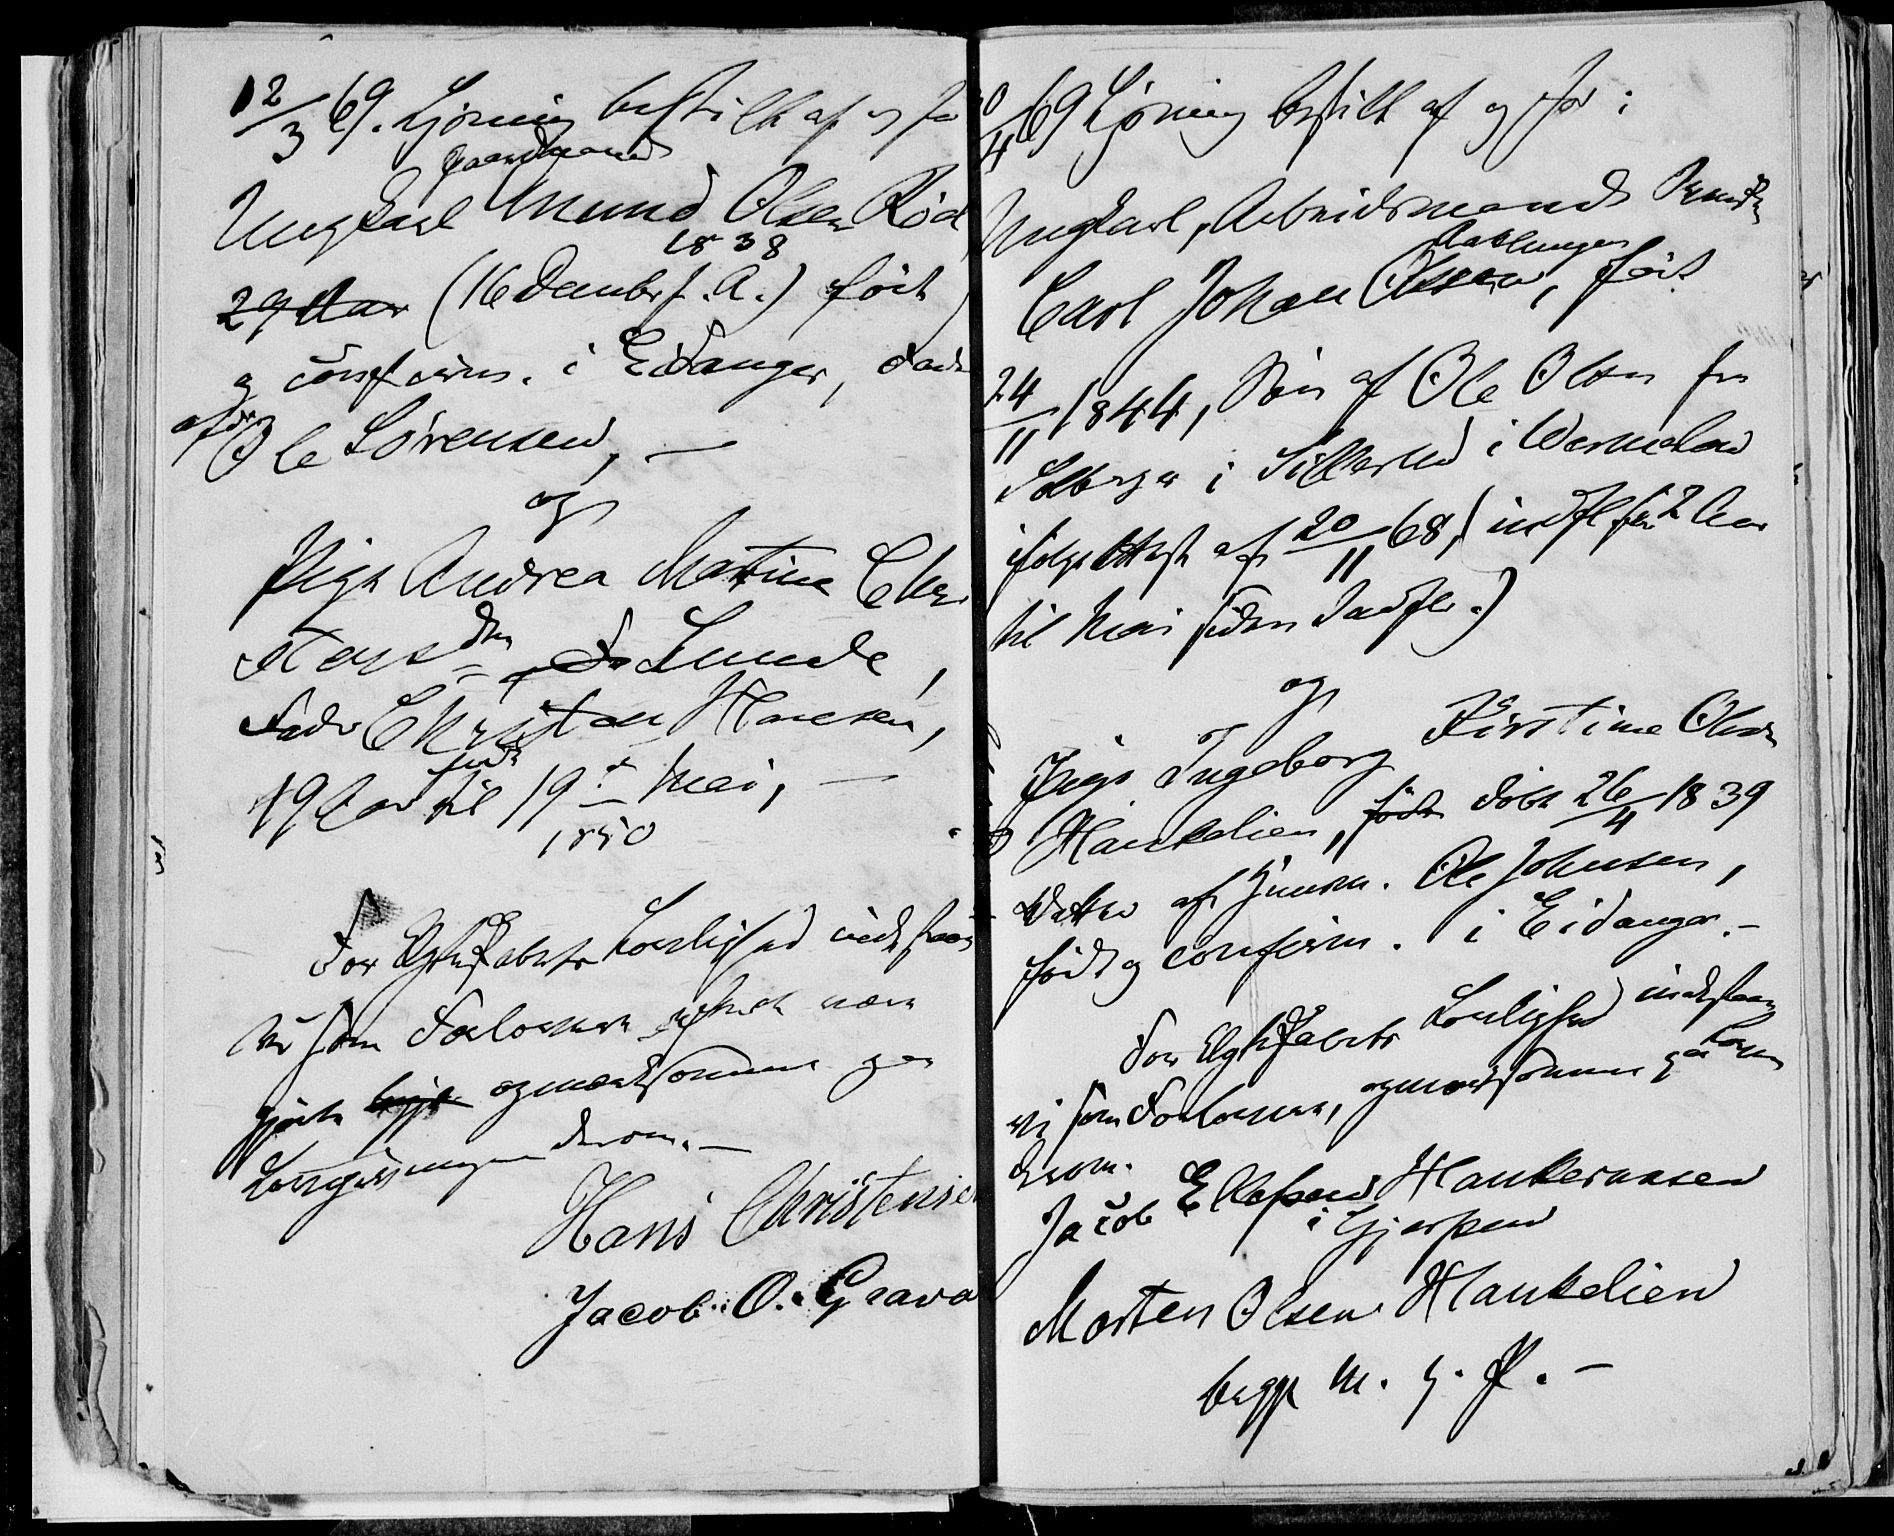 12/3 69. Lysning bestilt af og for
Gaardmand
Ungkarl Amund Olsen Röd
1838
29 Aar (16 Decembr f. A.) födt
og confirm. i Eidanger, Fader
Ole Sörensen, —
og
Pige Andrea Martine Chri
stensdtr fr Lunde,
Fader Christen Hansen,
födt
19 Aar til 19de Mai, —
1850
For Egteskabets Lovlighed indestaar
vi som Forlovere efterat være
gjorte begge opmærksomme paa
Lovgivningen derom. —
Hans Christensen
Jacob. O. Grava
0/4 69 Lysning bestilt af og for:
Ungkarl, Arbeidsmand
Carl Johan Olsen, født
24/11 1844, Sön af Ole Olsen fra
Solberga i Sillerud i Wermeland
ifölge Attest af 20/11 68, indfl. för 2 Aar
til Mai siden
og
Pige Ingeborg Kirstine Olsdr
Haukelien, födt döbt 26/4 1839
Datter af Huusm. Ole Johnsen,
födt og confirm. i Eidanger. —
For Egteskabets Lovlighed indestaar
vi som Forlovere, opmærksomme paa Loven
derom.
Jacob Ellefsen Haukeraasen
i Gjerpen
Morten Olsen Haukelien
begge m. p. P. —